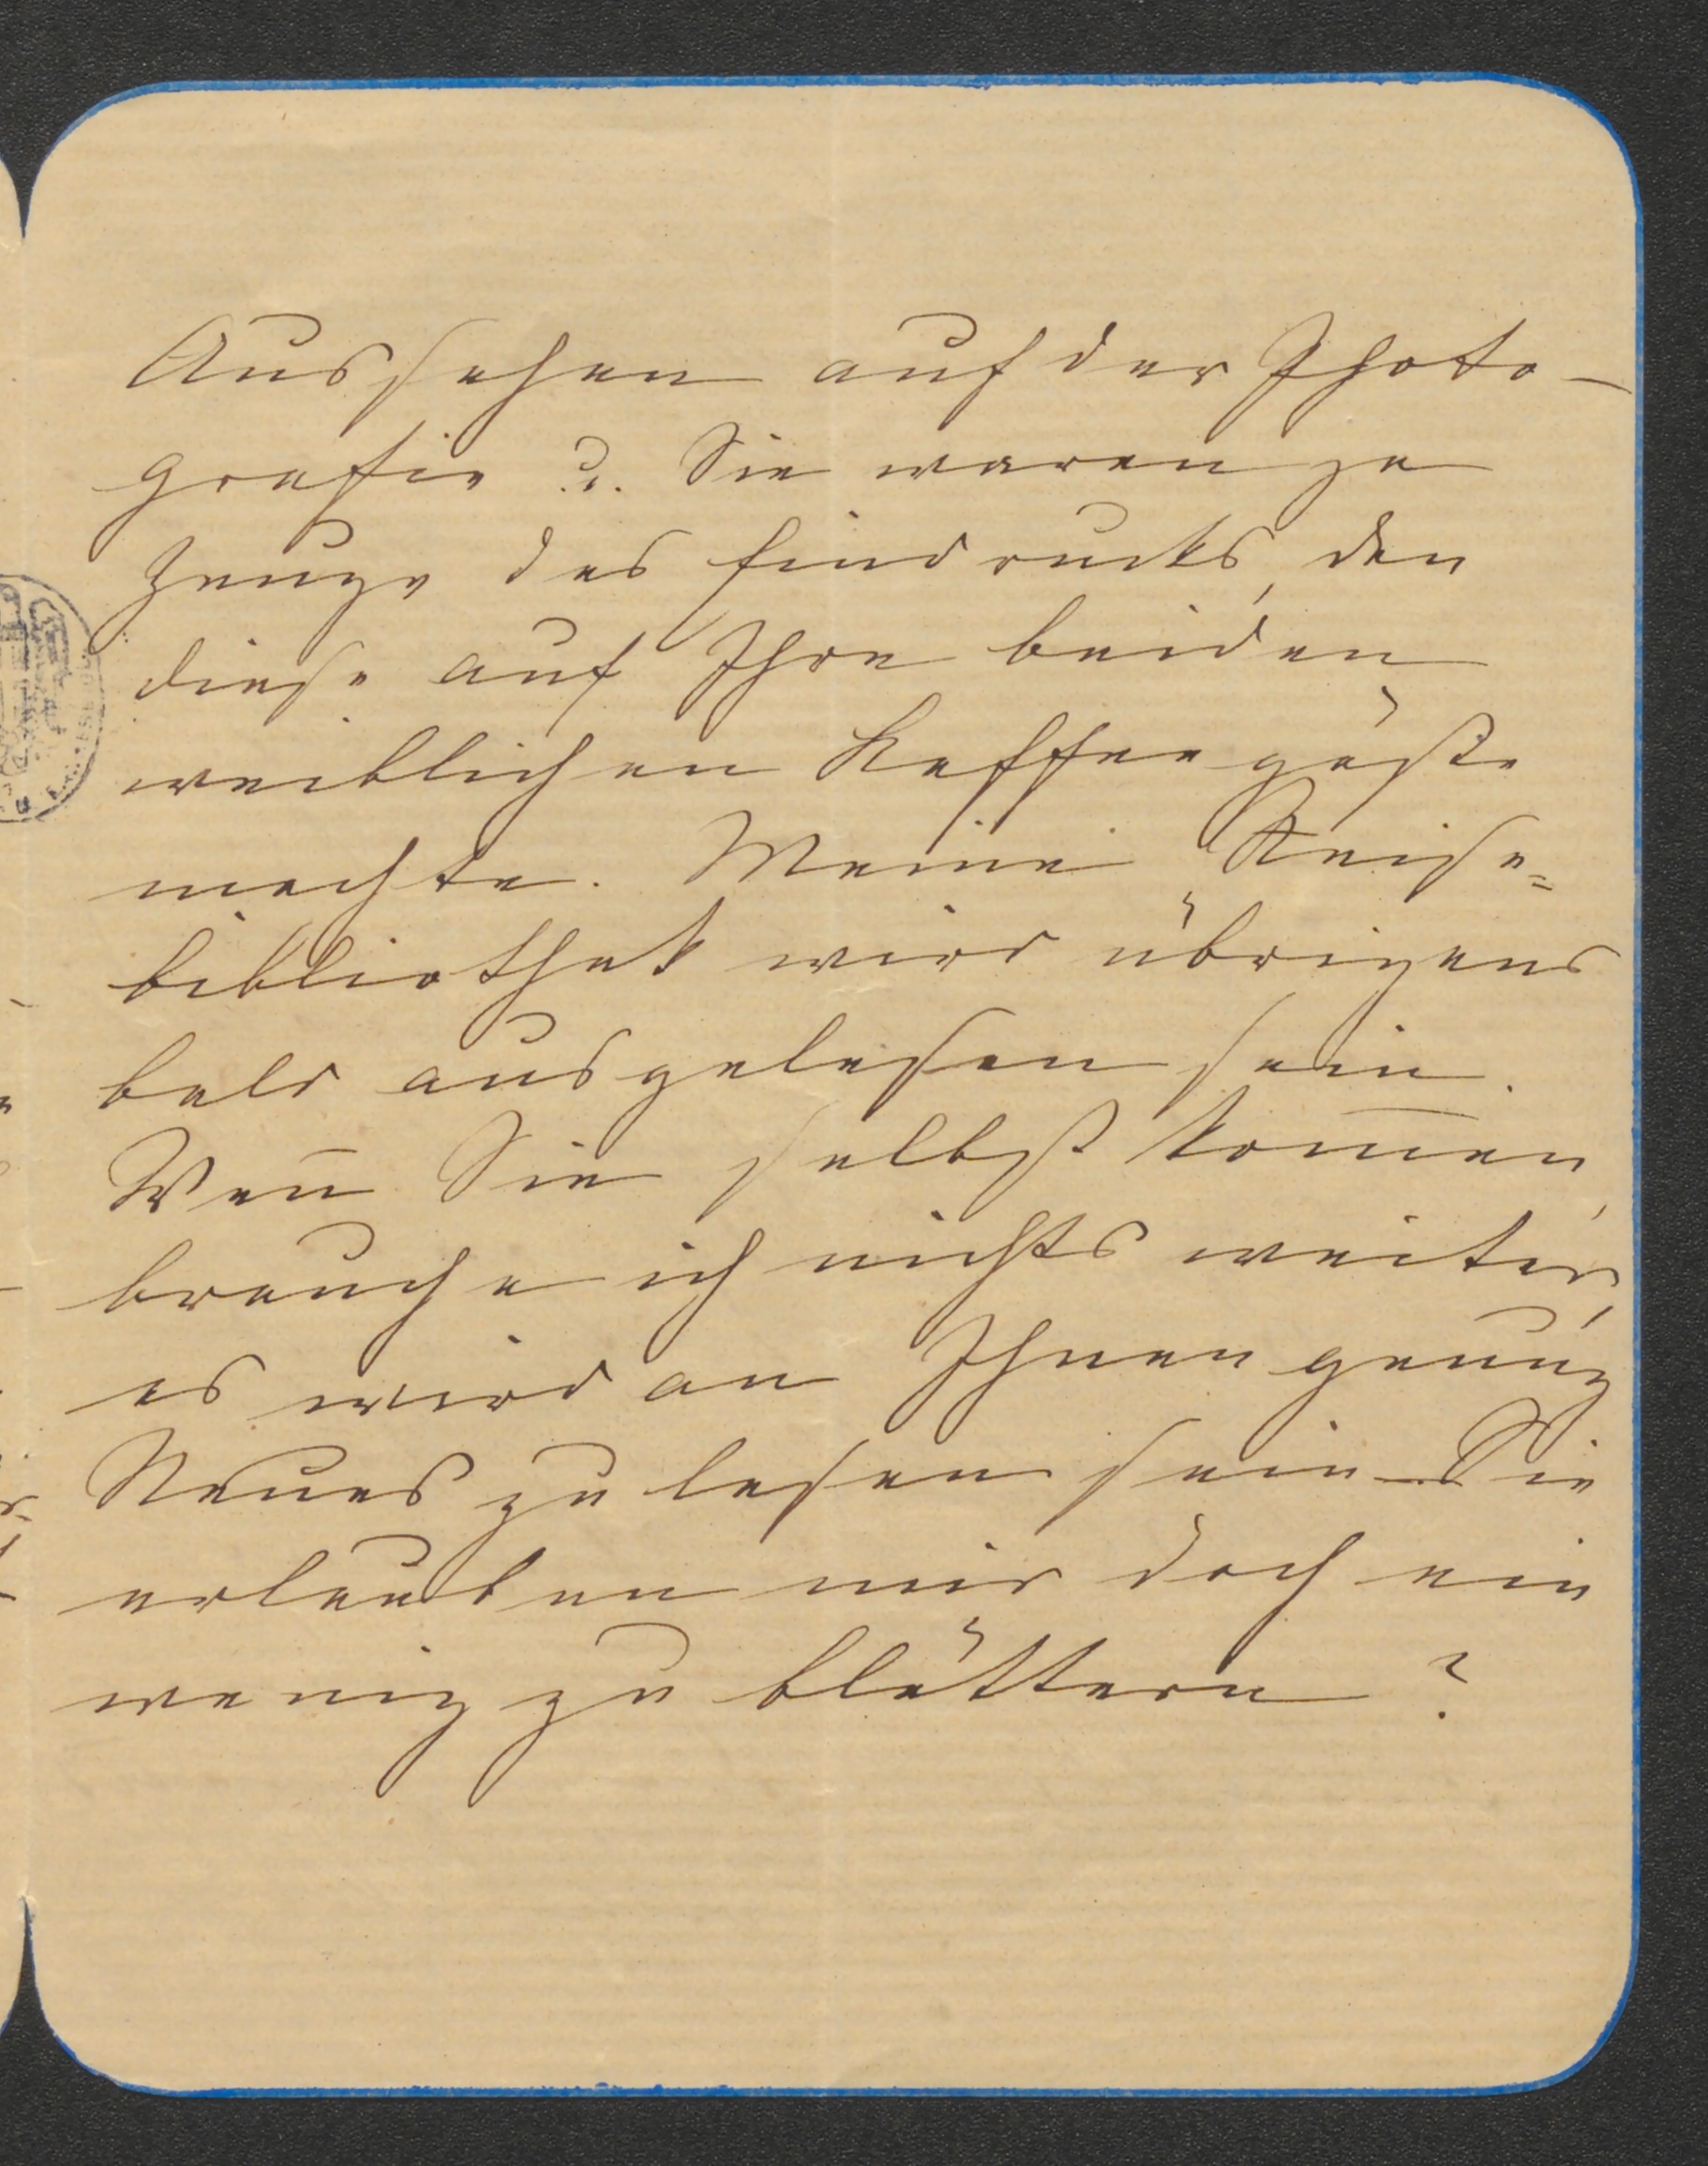 Aussehen auf der Photo-
grafie u. Sie waren ja
Zeuge des Eindrucks, den
diese auf Ihre beiden
weiblichen Kaffeegäste
machte. Meine Reise=
bibliothek wird übrigens
bald ausgelesen sein.
Wen̄ Sie selbst kom̄en,
brauche ich nichts weiter,
es wird an Ihnen genug
Neues zu lesen sein – Sie
erlauben mir doch ein
wenig zu blättern?